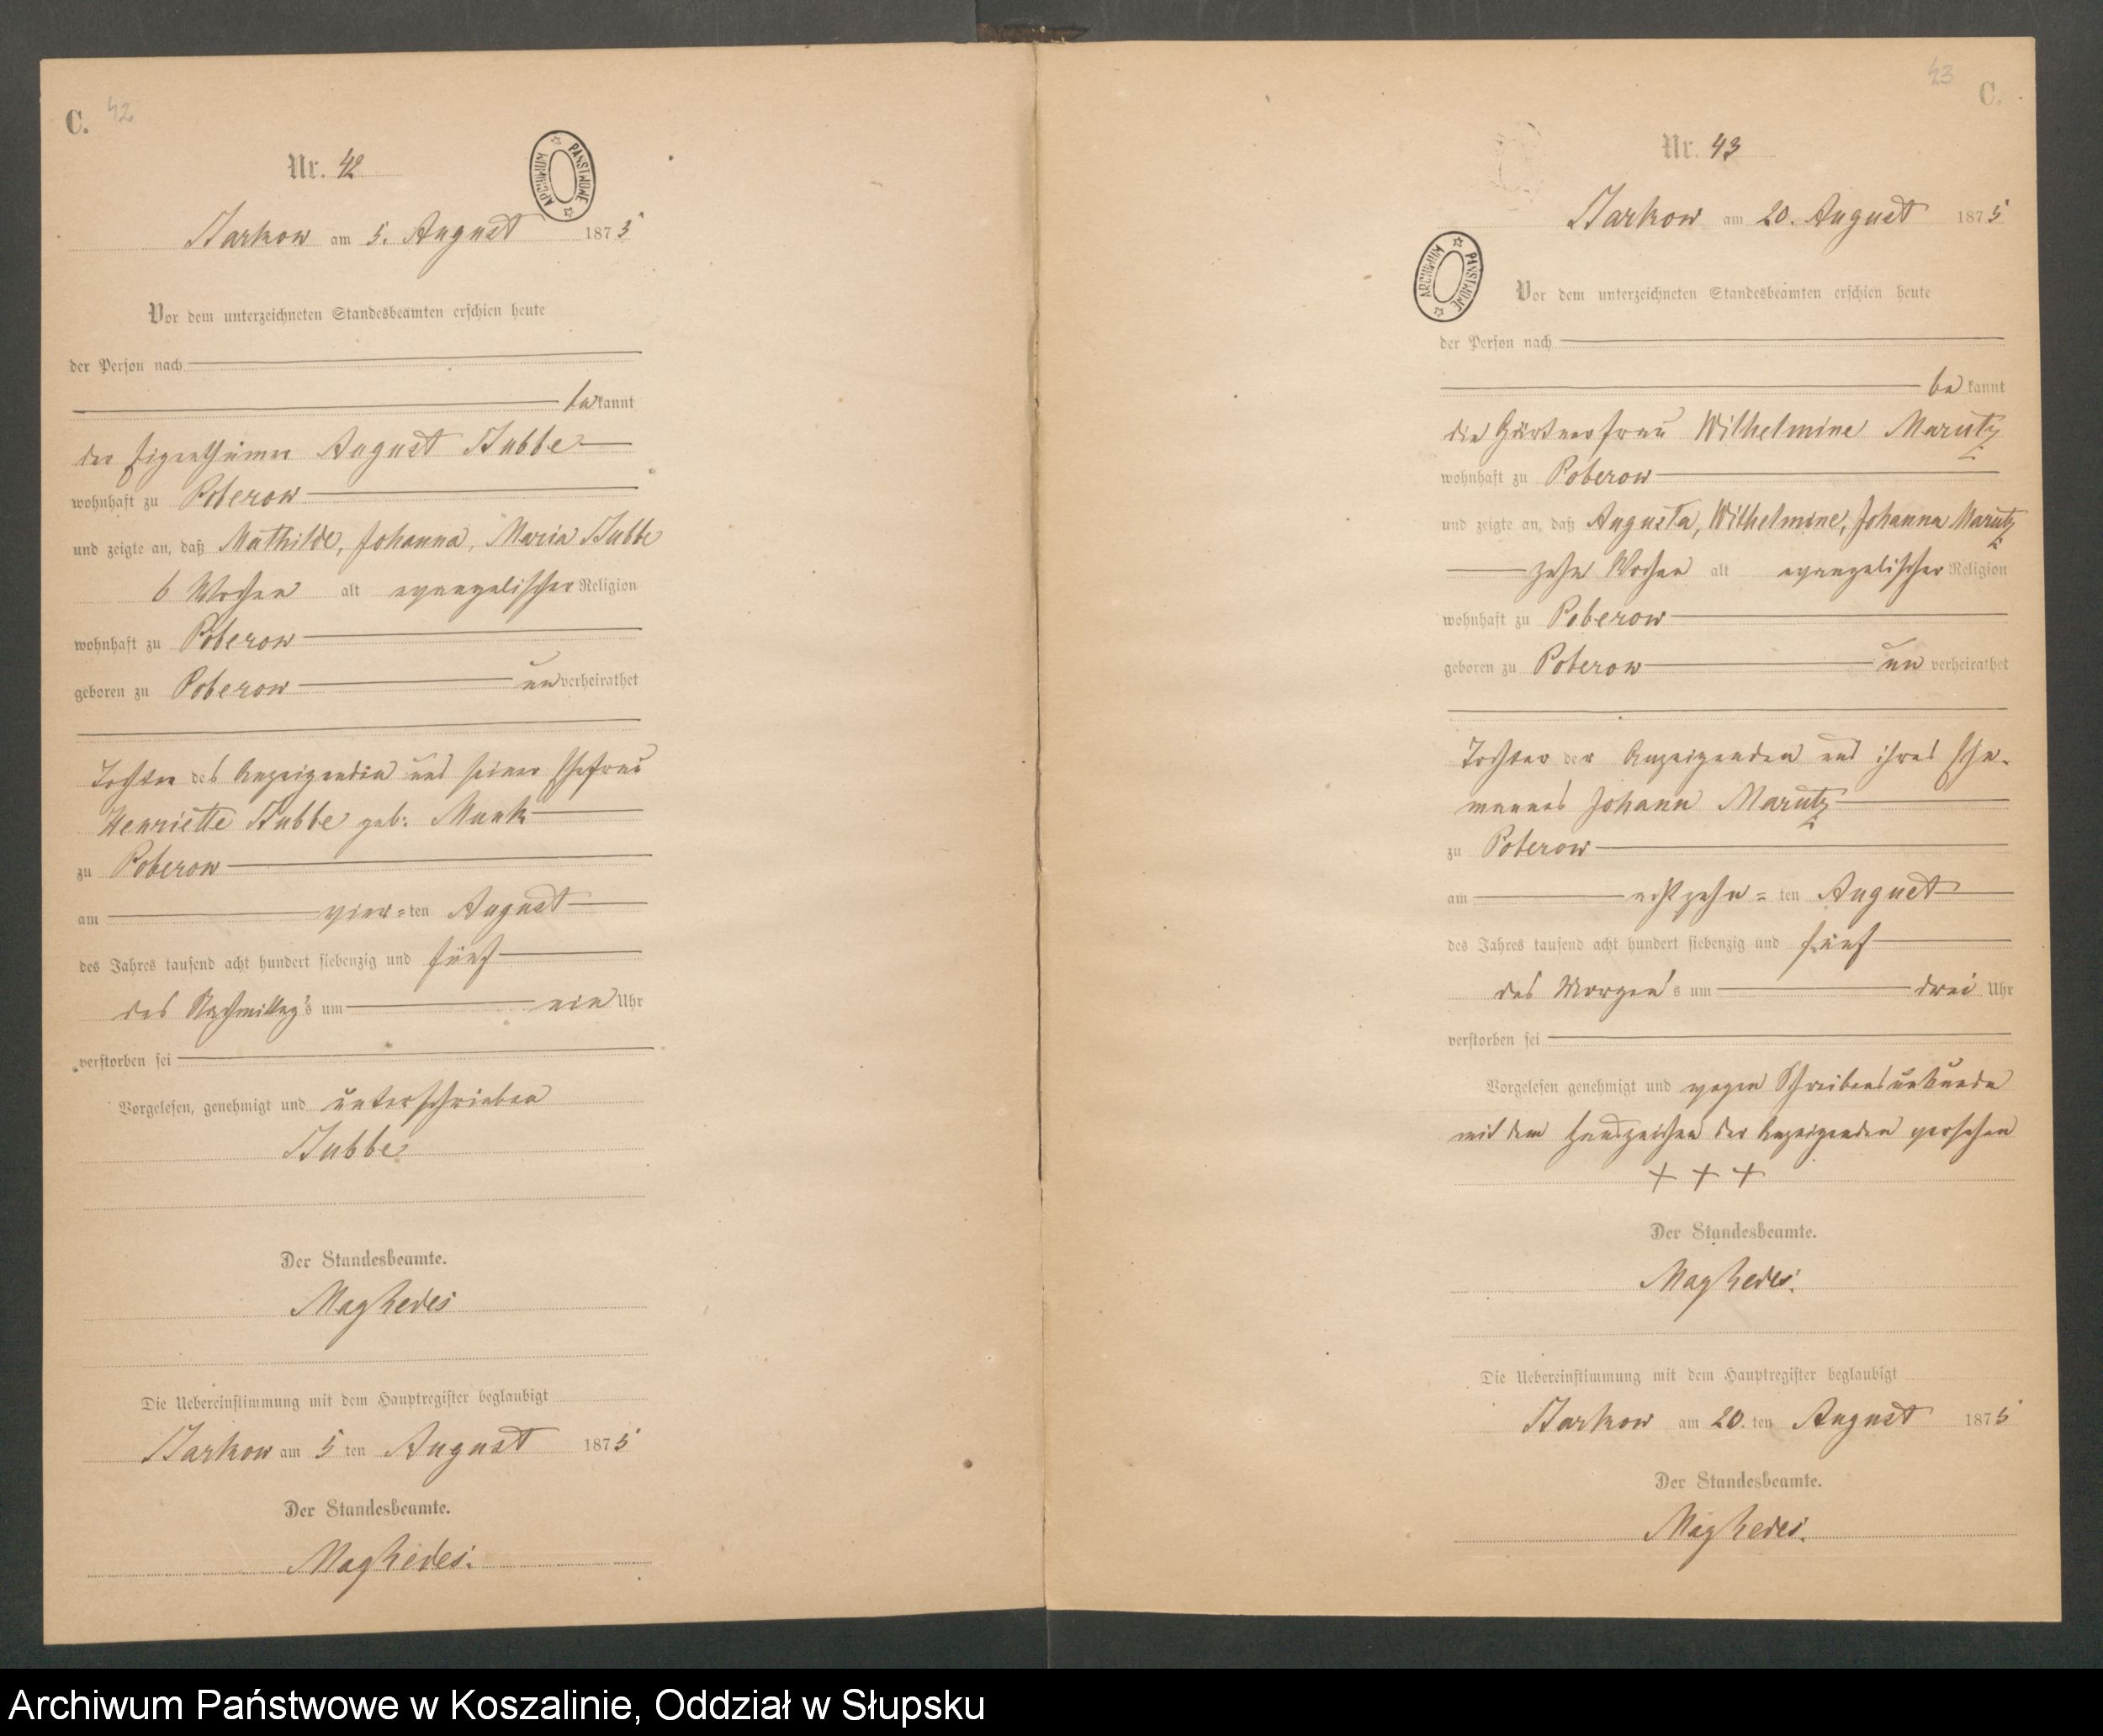 C. 42
Nr. 42
ARCHIWUM PAŃSTWOWE
Starkow am 5. August 1875
Vor dem unterzeichneten Standesbeamten erschien heute
der Person nach
bekannt
der Eigenthümer August Stubbe
wohnhaft zu Poberow
und zeigte an, daß Mathilde, Johanna, Maria Stubbe
6 Wochen alt evangelischer Religion
wohnhaft zu Poberow
geboren zu Poberow unverheirathet
Tochter des Anzeigenden und seiner Ehefrau
Henriette Stubbe geb. Munk
zu Poberow
am vier=ten August
des Jahres tausend acht hundert siebenzig und fünf
des Nachmittag's um ein Uhr
verstorben sei
Vorgelesen, genehmigt und unterschrieben
Stubbe
Der Standesbeamte.
Die Uebereinstimmung mit dem Hauptregister beglaubigt
Starkow am 5 ten August 1875
Der Standesbeamte.
43 C.
Nr. 43
Starkow am 20. August 1875
ARCHIWUM PAŃSTWOWE
Vor dem unterzeichneten Standesbeamten erschien heute
der Person nach
bekannt
die Gärtnerfrau Wilhelmine Marutz
wohnhaft zu Poberow
und zeigte an, daß Augusta, Wilhelmine, Johanna Marutz
zehn Wochen alt evangelischer Religion
wohnhaft zu Poberow
geboren zu Poberow unverheirathet
Tochter der Anzeigenden und ihres Ehe-
mannes Johann Marutz
zu Poberow
am achtzehn=ten August
des Jahres tausend acht hundert siebenzig und fünf
des Morgen's um drei Uhr
verstorben sei
Vorgelesen genehmigt und wegen Schreibensunkunde
mit dem Handzeichen der Anzeigenden versehen
+ + +
Der Standesbeamte.
Die Uebereinstimmung mit dem Hauptregister beglaubigt
Starkow am 20. ten August 1875
Der Standesbeamte.
Archiwum Państwowe w Koszalinie, Oddział w Słupsku